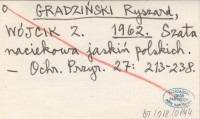 GRADZIŃSKI Ryszard,
WÓJCIK Z. 1962. Szata
naciekowa jaskiń polskich.
— Ochr. Przyr. 27: 213-238.